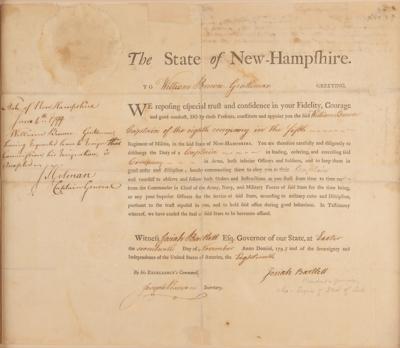 The State of New-Hampshire.
TO William Gentleman GREETING.
WE reposing especial trust and confidence in your Fidelity, Courage
and good conduct, DO by these Presents, constitute and appoint you the said William
Captain of the eighth company in the fifth
Regiment of Militia, in the said State of NEW-HAMPSHIRE. You are therefore carefully and diligently to
discharge the Duty of a Captain in leading, ordering and exercising said
Company in Arms, both inferior Officers and Soldiers, and to keep them in
good order and Discipline; hereby commanding them to obey you as their Captain
and yourself to observe and follow such Orders and Instructions, as you shall from time to time
from the Commander in Chief of the Army, Navy, and Military Forces of said State for the time being,
or any your Superior Officers for the service of said State, according to military rules and Discipline,
pursuant to the trust reposed in you, and to hold said office during good behaviour. In Testimony
whereof, we have caused the seal of said State to be hereunto affixed.
Witness Josiah Bartlett Esq. Governor of our State, at Exeter
the Day of Anno Domini, 179 and of the Sovereignty and
Independence of the United States of America, the Eighteenth
By His EXCELLENCY's Command, Josiah Bartlett
Secretary.
State of New Hampshire
June 6th 1799
William Gentleman
having requested leave to
his resignation is
accepted
Captain General